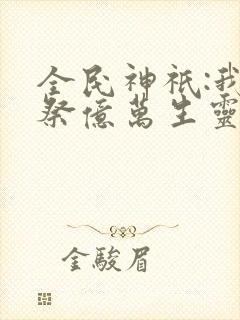 全民神祇:我
祭億萬生靈
金駿眉